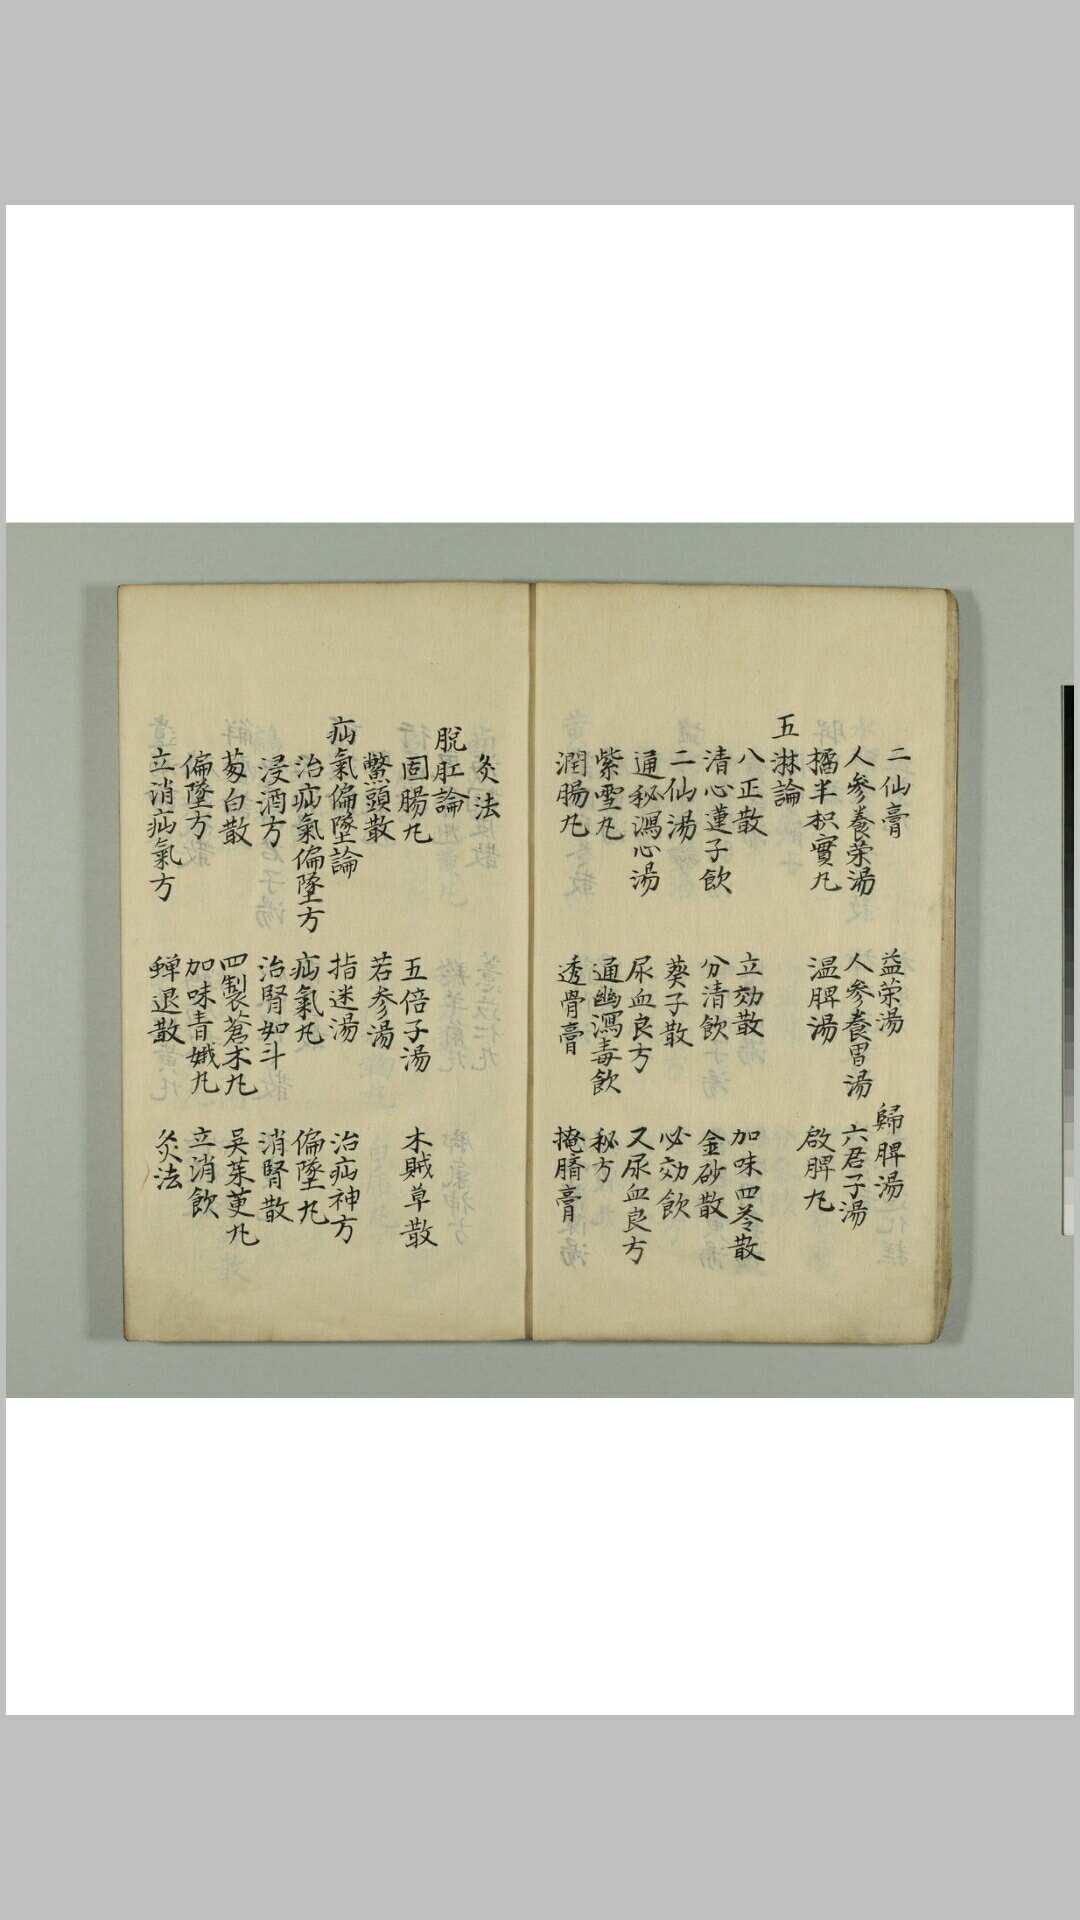 二仙膏 益荣湯 歸脾湯
人参養荣湯 人参養胃湯 六君子湯
橘半枳實丸 温脾湯 啟脾丸
五淋論
八正散 立効散 加味四苓散
清心蓮子飲 分清飲 金砂散
二仙湯 葵子散 必効飲
通秘瀉心湯 尿血良方 又尿血良方
紫雪丸 通幽瀉毒飲 秘方
潤腸丸 透骨膏 掩臍膏
灸法
脫肛論
固腸丸 五倍子湯 木賊草散
鱉頭散 若参湯
疝氣偏墜論 指迷湯 治疝神方
治疝氣偏墜方 疝氣丸 偏墜丸
浸酒方 治腎如斗 消腎散
蒭白散 四製蒼朮丸 吳茱萸丸
偏墜方 加味青娥丸 立消飲
立消疝氣方 蟬退散 灸法